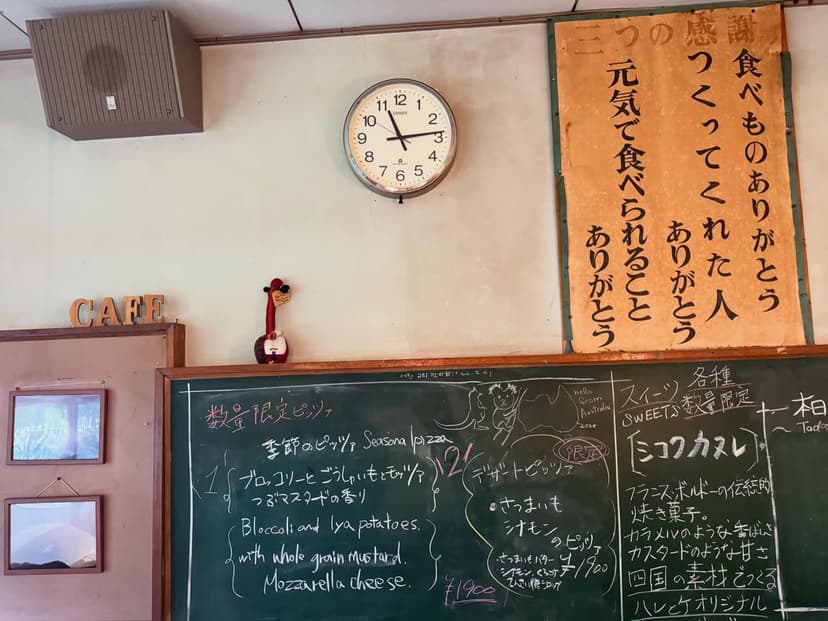 三つの感謝
食べものありがとう
つくってくれた人
ありがとう
元気で食べられること
ありがとう
CAFE
12
1
2
3
4
5
6
7
8
9
10
11
数量限定ピッツァ
季節のピッツァ Seasonal pizza
1
ブロッコリーとごうしゅいもとモッツァ
つぶマスタードの香り
Bloccoli and Iya potatoes.
with whole grain mustard.
Mozzarella cheese.
¥1900
2
hello
from
Australia
限定
デザートピッツァ
・さつまいも
シナモン
のピッツァ
さつまいもバター
¥1900
スイーツ
SWEETS
各種
数量限定
シコクカヌレ
フランス・ボルドーの伝統的
焼き菓子。
カラメルのような香ばしさ
カスタードのような甘さ
四国の素材でつくる
ハレとケオリジナル
相